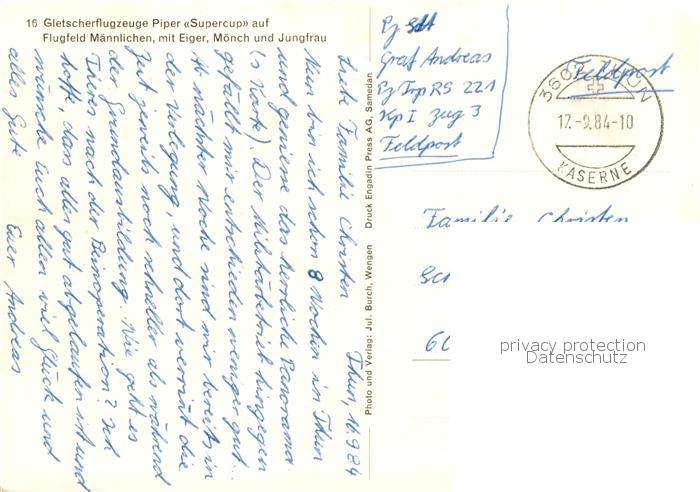 16 Gletscherflugzeuge Piper «Supercup» auf
Flugfeld Männlichen, mit Eiger, Mönch und Jungfrau
Thun, 16.9.84
Liebe Familie Christen
Nun bin ich schon 8 Wochen in Thun
und geniesse das herrliche Panorama
(s. Karte). Der Militärbetrieb hingegen
gefällt mir entschieden weniger gut.
Ab nächster Woche sind wir bereits in
der Verlegung, und dort verrinnt die
Zeit jeweils noch schneller als während
der Grundausbildung. Wie geht es
nach der Beinoperation? Ich
hoffe, dass alles gut abgelaufen ist und
wünsche Euch allen viel Glück und
alles Gute
Euer Andreas
Photo und Verlag: Jul. Burch, Wengen Druck Engadin Press AG, Samedan
Graf Andreas
Pz Trp RS 221
Kp I Zug 3
Feldpost
Feldpost
3600 THUN
17.-9.84-10
KASERNE
Familie Christen
privacy protection
Datenschutz